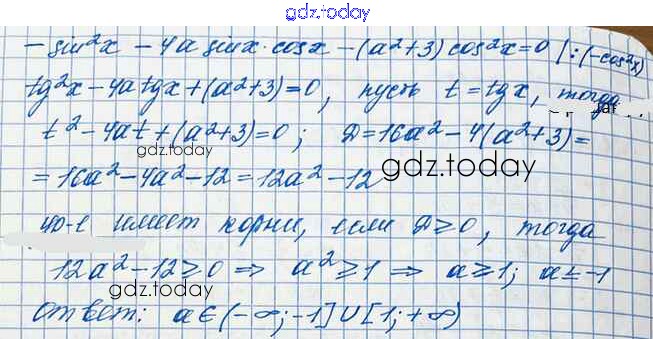 gdz.today
- sin²x - 4a sinx·cosx - (a²+3)cos²x=0 |:(-cos²x)
tg²x - 4a tgx + (a²+3)=0, пусть t=tgx, тогда
t² - 4at + (a²+3)=0; D=16a² - 4(a²+3)=
gdz.today
= 16a² - 4a² - 12 = 12a² - 12
gdz.today
ур-е имеет корни, если D≥0, тогда
12a² - 12≥0 ⇒ a²≥1 ⇒ a≥1; a≤-1
gdz.today
Ответ: a∈(-∞;-1]∪[1;+∞)